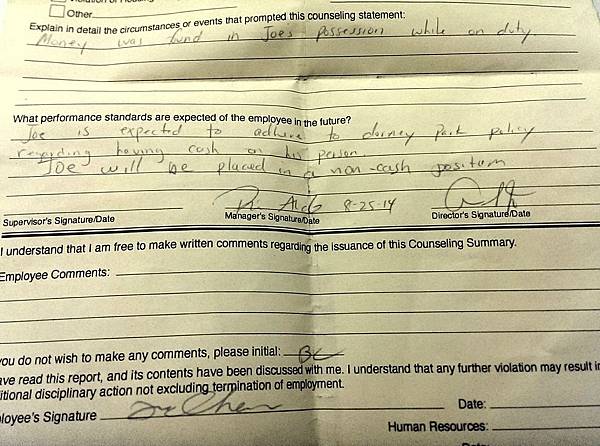 Other
Explain in detail the circumstances or events that prompted this counseling statement:
Money was fund in Joes possession while on duty.
What performance standards are expected of the employee in the future?
Joe is expected to adhere to dorney Park policy
regarding having cash on his person.
Joe will be placed in a non-cash position
8-25-14
Supervisor's Signature/Date Manager's Signature/Date Director's Signature/Date
I understand that I am free to make written comments regarding the issuance of this Counseling Summary.
Employee Comments:
you do not wish to make any comments, please initial:
ave read this report, and its contents have been discussed with me. I understand that any further violation may result in
itional disciplinary action not excluding termination of employment.
loyee's Signature Date:
Human Resources: